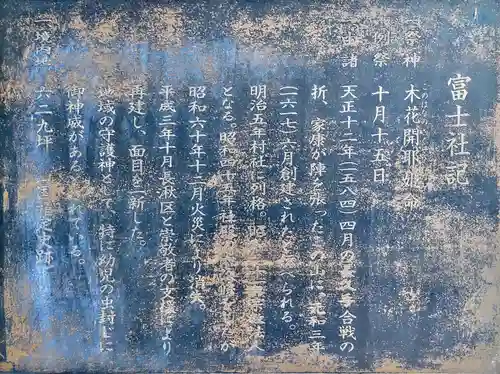 富士社記
祭神 木花開耶姫命
例祭 十月十五日
由諸 天正十二年(一五八四)四月の長久手合戦の
折、家康が陣を張ったこの山に、元和三年
(一六一七)六月創建されたと伝へられる。
明治五年村社に列格。昭 二十 法人
となる。昭和四十五年社殿 が
昭和六十年十二月火災により消失、
平成三年十月長湫区と崇敬者の支援により
再建し、面目を一新した。
地域の守護神として、特に幼児の虫封じに
御神威がある ている。
一、境内地 六二九坪 (国指定史跡)